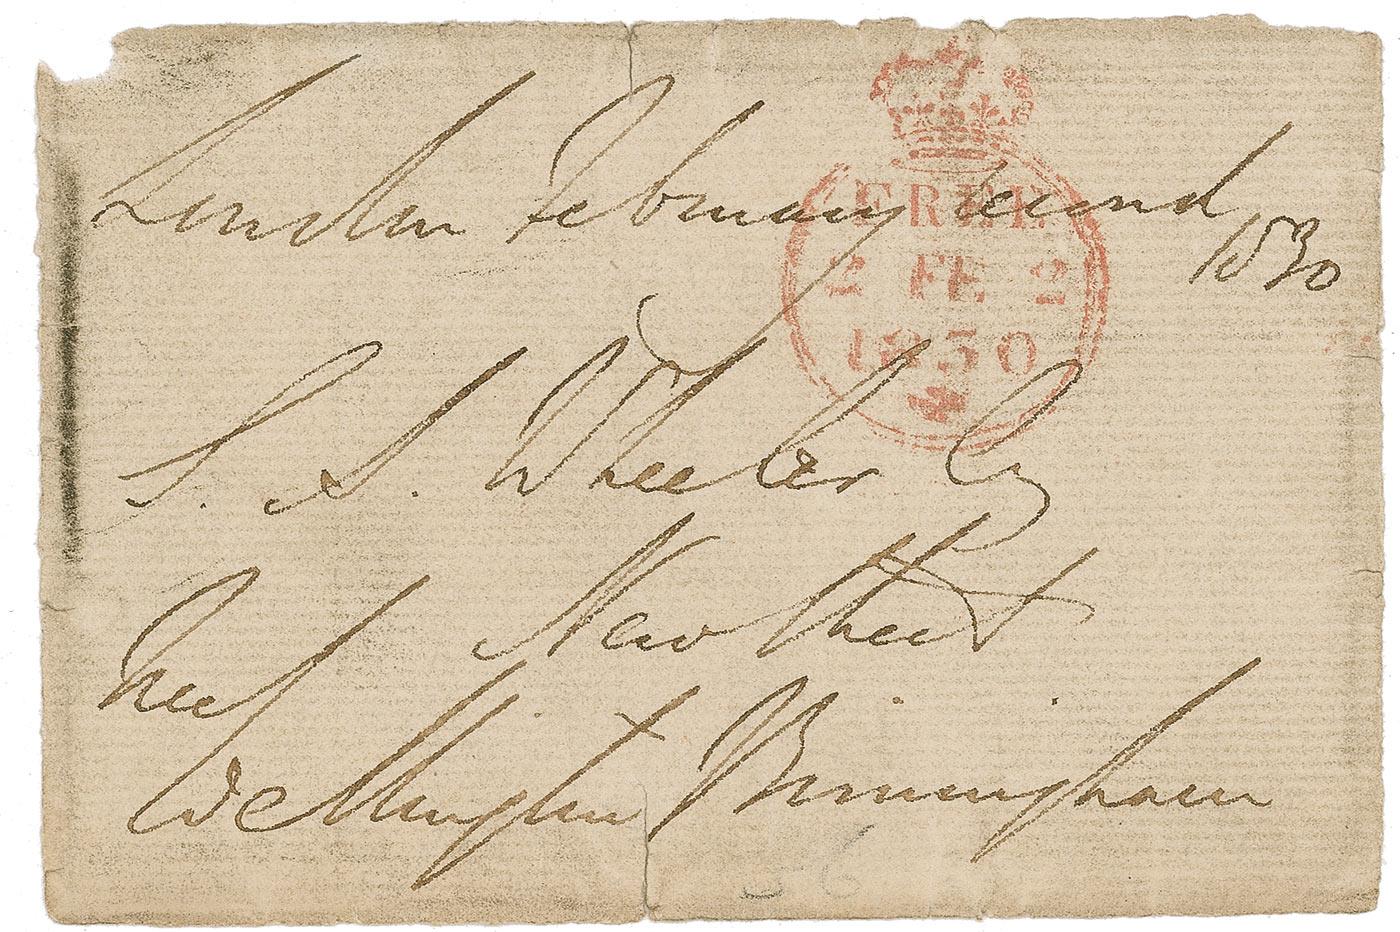 London February second
1830
FREE
2 FE 2
1830
S. S. Wheeler Esq
New Street
Free
Wellington Birmingham